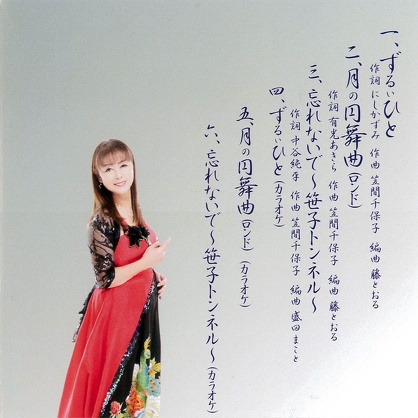 一、ずるいひと
作詞 にしかずみ 作曲 笠間千保子 編曲 藤とおる
二、月の円舞曲(ロンド)
作詞 有光あきら 作曲 笠間千保子 編曲 藤とおる
三、忘れないで〜笹子トンネル〜
作詞 中谷純平 作曲 笠間千保子 編曲 盛田まこと
四、ずるいひと(カラオケ)
五、月の円舞曲(ロンド)(カラオケ)
六、忘れないで〜笹子トンネル〜(カラオケ)